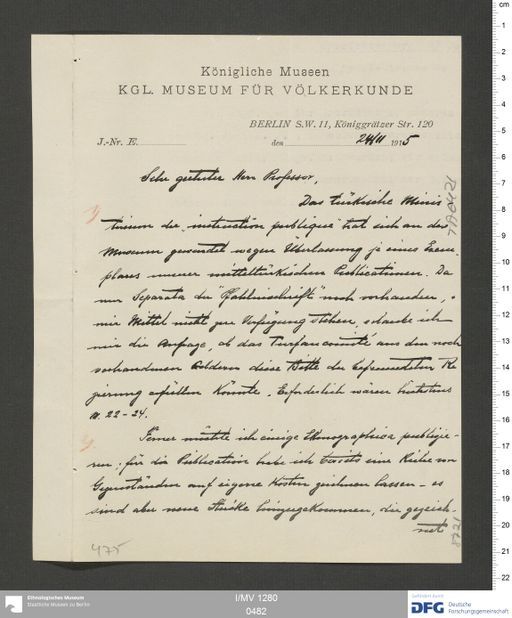 Königliche Museen
KGL. MUSEUM FÜR VÖLKERKUNDE
BERLIN S.W. 11, Königgrätzer Str. 120
J.-Nr. E.
den 24/11 1915
Sehr geehrter Herr Professor,
Das türkische Minis-
terium der "instruction publique" hat sich an das
Museum gewendet wegen Überlassung je eines Exem-
plares unserer mitteltürkischen Publicationen. Da
nur Separata der "Pfahlinschrift" noch vorhanden,
mir Mittel nicht zur Verfügung stehen, erlaube ich
mir die Anfrage, ob das Turfancomité aus den noch
vorhandenen Geldern diese Bitte der befreundeten Re-
gierung erfüllen könnte. Erforderlich wären höchstens
M. 22-24.
Ferner möchte ich einige Ikonographica publizie-
ren: für die Publication habe ich bereits eine Reihe von
Gegenständen auf eigene Kosten zeichnen lassen - es
sind aber neue Stücke hinzugekommen, die gezeich-
net
475
Ethnologisches Museum
Staatliche Museen zu Berlin
I/MV 1280
0482
Gefördert durch
DFG Deutsche
Forschungsgemeinschaft
cm
1
2
3
4
5
6
7
8
9
10
11
12
13
14
15
16
17
18
19
20
21
22